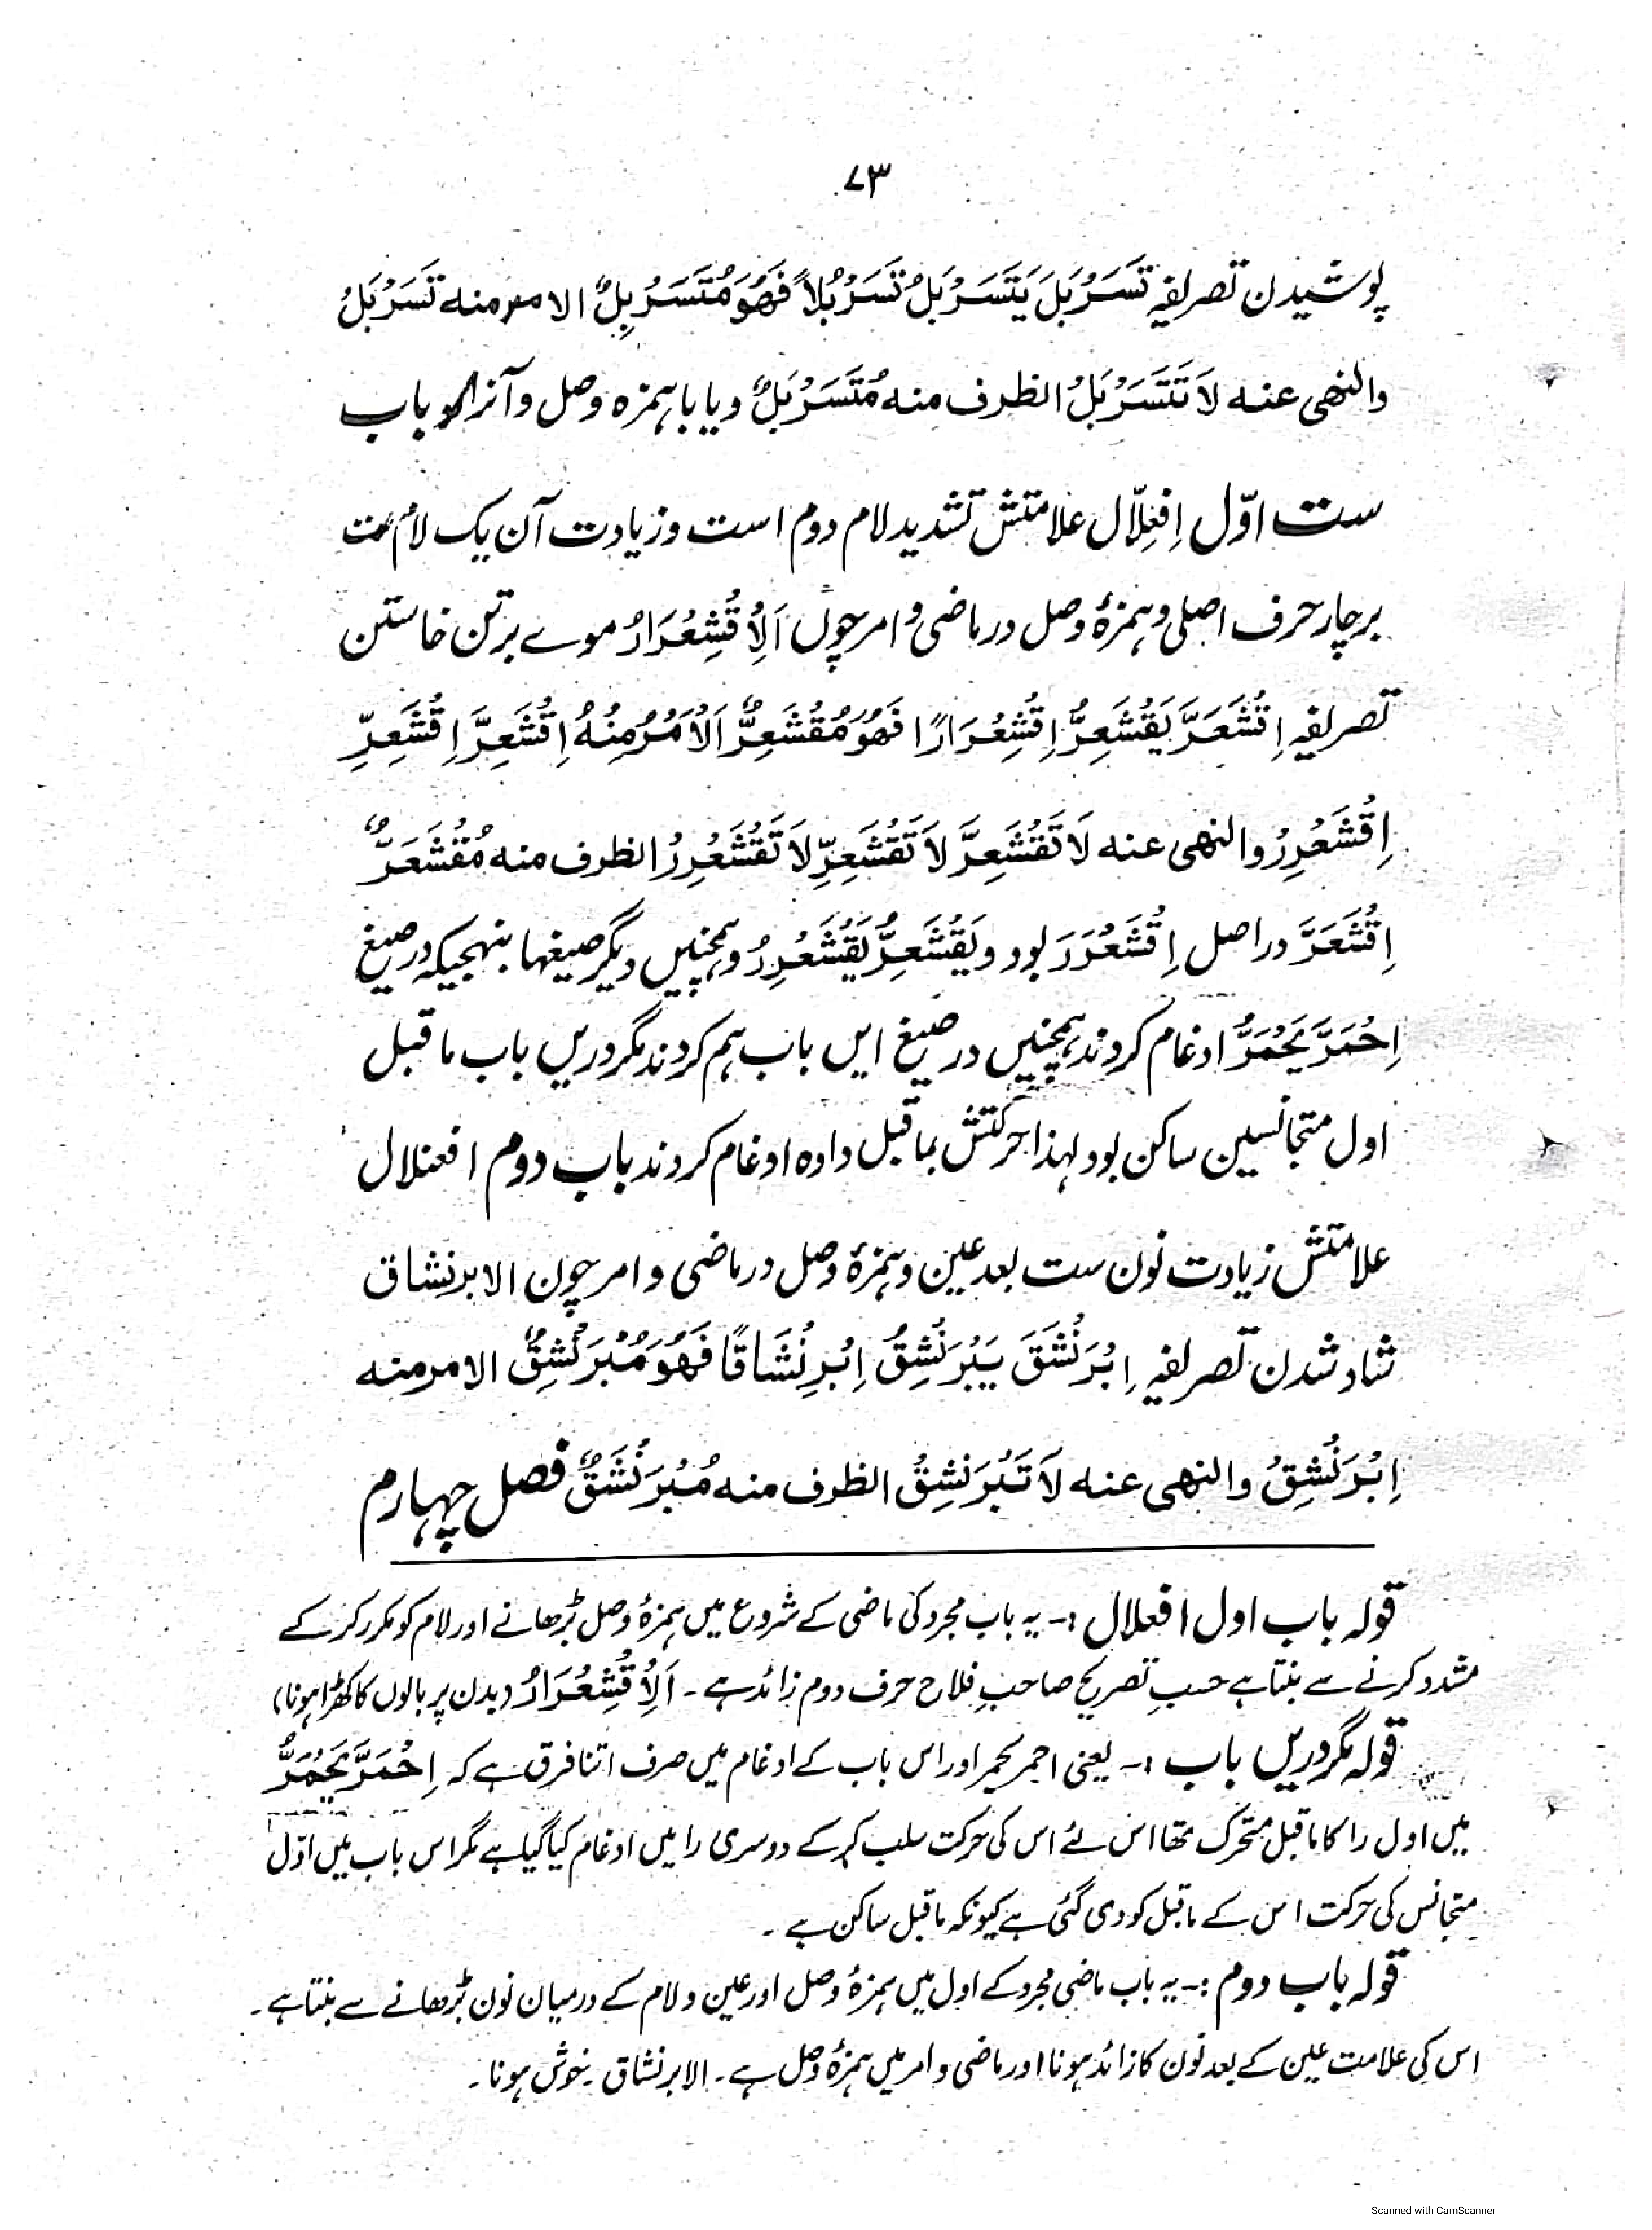 ۷۳
پوشیدن تصریفہ تَسَرْبَلَ یَتَسَرْبَلُ تَسَرْبُلاً فَهُوَ مُتَسَرْبِلٌ الامرمنه تَسَرْبَلْ
والنهی عنه لَا تَتَسَرْبَلْ الظرف منه مُتَسَرْبَلٌ ویا باہمزہ وصل وآنرا دو باب
ست اوّل اِفْعِلّال علامتش تشدید لام دوم است وزیادت آن یک لام ست
برچار حرف اصلی وہمزۂ وصل درماضی و امر چوں اَلْاِقْشِعْرَارُ موے برتن خاستن
تصریفہ اِقْشَعَرَّ یَقْشَعِرُّ اِقْشِعْرَارًا فَهُوَ مُقْشَعِرٌّ اَلْاَمْرُ مِنْهُ اِقْشَعِرَّ اِقْشَعِرِّ
اِقْشَعْرِرْ والنهی عنه لَا تَقْشَعِرَّ لَا تَقْشَعِرِّ لَا تَقْشَعْرِرْ الظرف منه مُقْشَعَرٌّ
اِقْشَعَرَّ دراصل اِقْشَعْرَرَ بود و یَقْشَعِرُّ یَقْشَعْرِرُ وہمچنیں دیگر صیغہا بنہجیکہ در صیغ
اِحْمَرَّ یَحْمَرُّ ادغام کردند ہمچنیں در صیغ ایں باب ہم کردند مگر دریں باب ماقبل
اول متجانسین ساکن بود لہذا حرکتش بماقبل دادہ ادغام کردند باب دوم افعنلال
علامتش زیادت نون ست بعد عین وہمزۂ وصل درماضی و امر چون الابرنشاق
شاد شدن تصریفہ اِبْرَنْشَقَ یَبْرَنْشِقُ اِبْرِنْشَاقًا فَهُوَ مُبْرَنْشِقٌ الامرمنه
اِبْرَنْشِقْ والنهی عنه لَا تَبْرَنْشِقْ الظرف منه مُبْرَنْشَقٌ فصل چہارم
قولہ باب اول افعلال :- یہ باب مجرد کی ماضی کے شروع میں ہمزۂ وصل بڑھانے اور لام کو مکرر کر کے
مشدد کرنے سے بنتا ہے حسبِ تصریح صاحبِ فلاح حرف دوم زائد ہے۔ اَلْاِقْشِعْرَارُ (بدن پر بالوں کا کھڑا ہونا)
قولہ مگر دریں باب :- یعنی احمر یحمر اور اس باب کے ادغام میں صرف اتنا فرق ہے کہ اِحْمَرَّ یَحْمَرُّ
میں اول را کا ماقبل متحرک تھا اس لئے اس کی حرکت سلب کر کے دوسری را میں ادغام کیا گیا ہے مگر اس باب میں اوّل
متجانس کی حرکت اس کے ماقبل کو دی گئی ہے کیونکہ ماقبل ساکن ہے ۔
قولہ باب دوم :- یہ باب ماضی مجرد کے اول میں ہمزۂ وصل اور عین و لام کے درمیان نون بڑھانے سے بنتا ہے۔
اس کی علامت عین کے بعد نون کا زائد ہونا اور ماضی و امر میں ہمزۂ وصل ہے۔ الابرنشاق۔ خوش ہونا۔
Scanned with CamScanner